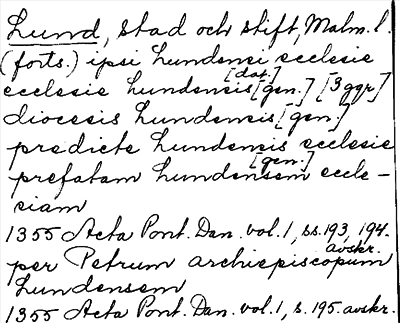 Lund, stad och stift, Malm. l.
(forts.) ipsi Lundensi ecclesie
[dat.]
ecclesie Lundensis [gen.] [3 ggr]
diocesis Lundensis [gen.]
predicte Lundensis ecclesie
[gen.]
prefatam Lundensem eccle-
siam
1355 Acta Pont. Dan. vol. 1, ss. 193, 194.
avskr.
per Petrum archiepiscopum
Lundensem
1355 Acta Pont. Dan. vol. 1, s. 195. avskr.